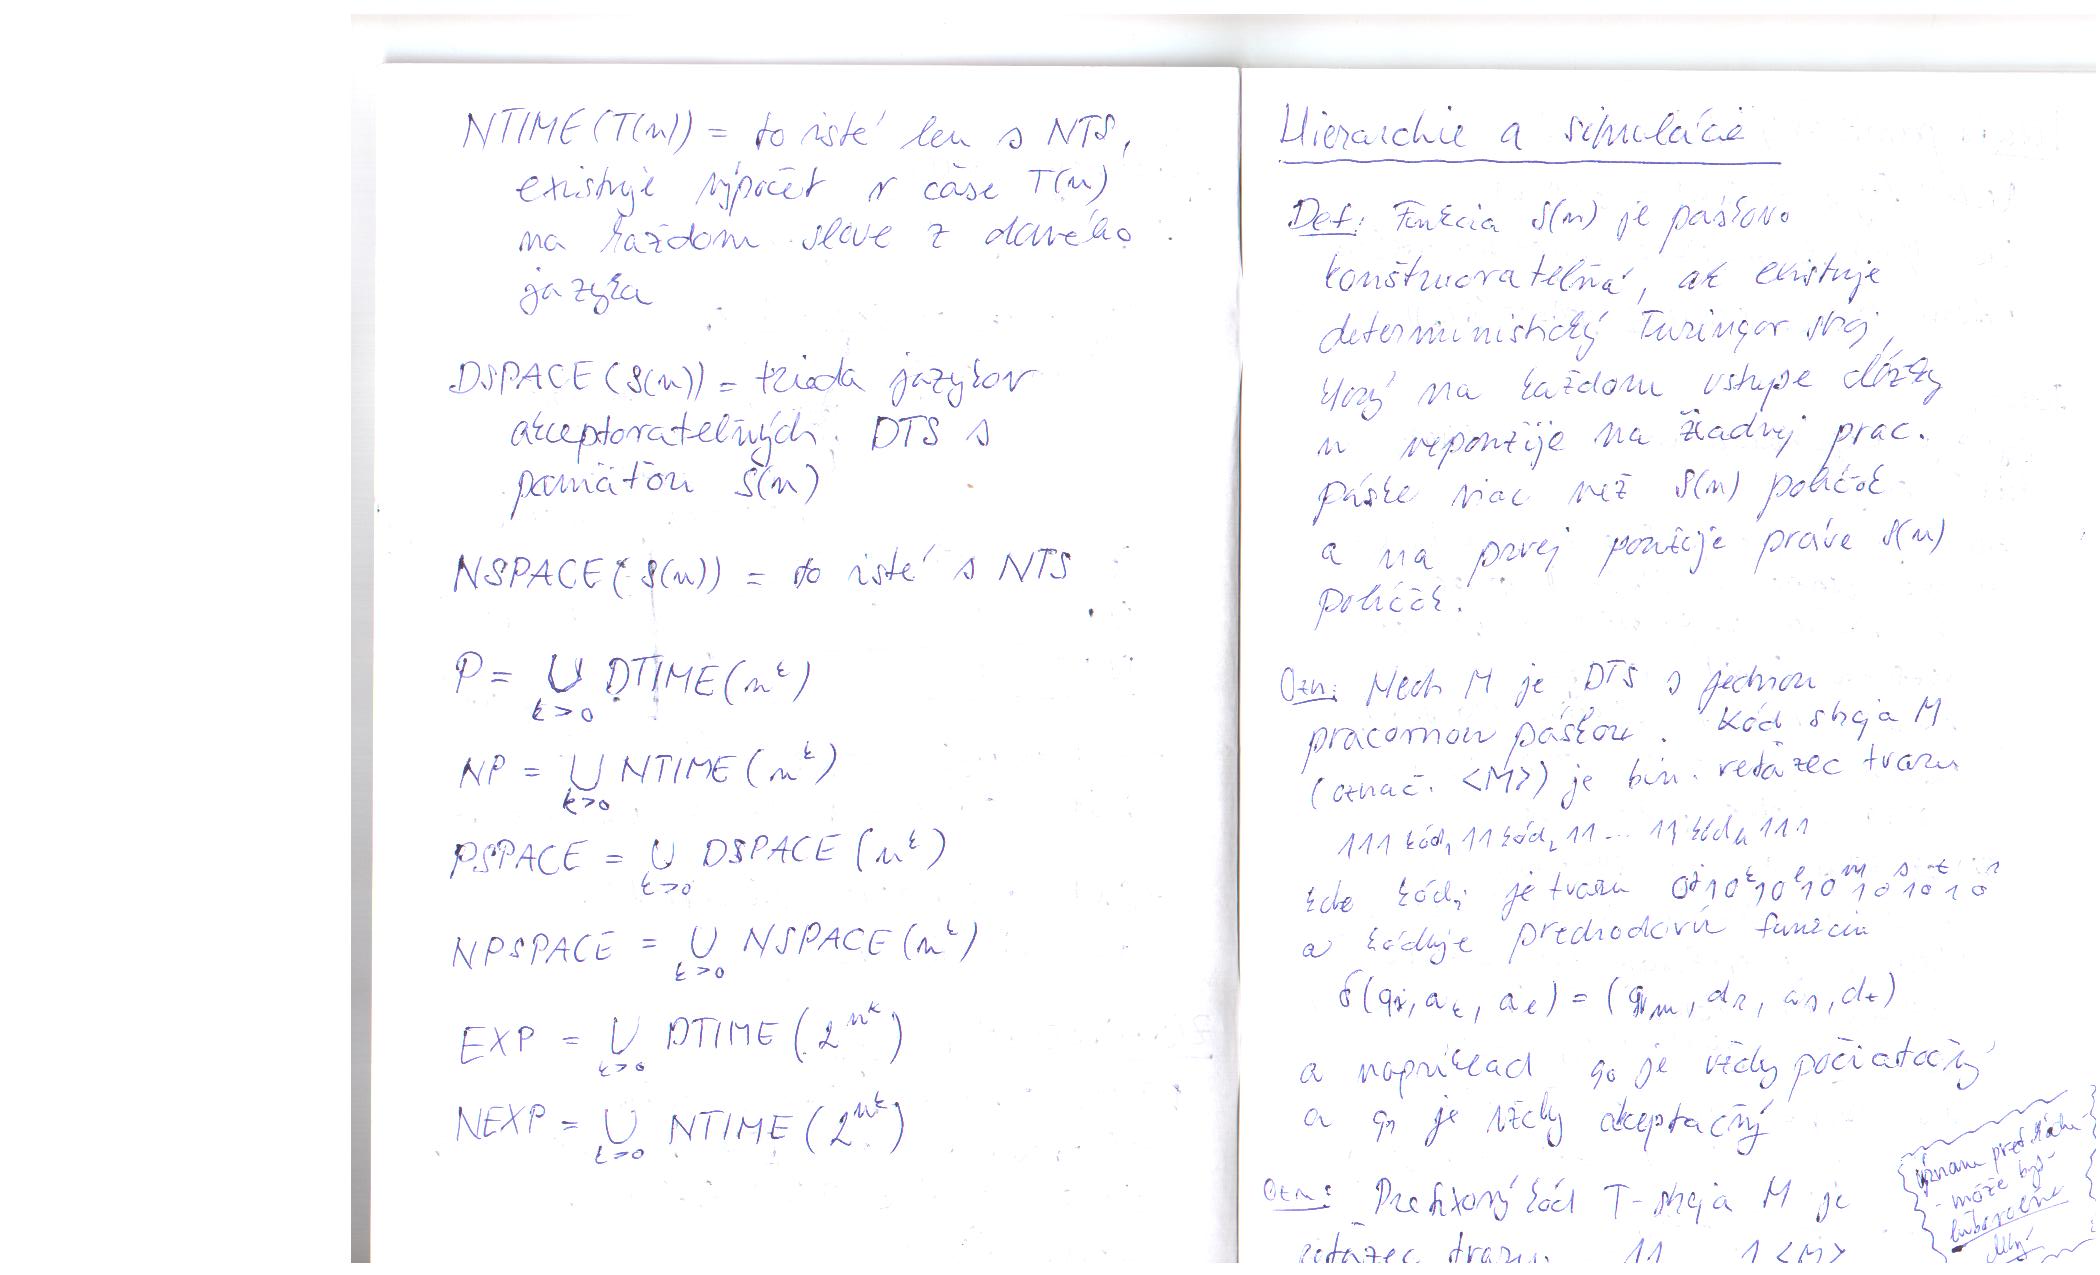 NTIME(T(n)) = to isté len s NTS,
existuje výpočet v čase T(n)
na každom slove z daného
jazyka
DSPACE(S(n)) = trieda jazykov
akceptovateľných DTS s
pamäťou S(n)
NSPACE(S(n)) = to isté s NTS
P = ∪ DTIME(n^k)
k>0
NP = ∪ NTIME(n^k)
k>0
PSPACE = ∪ DSPACE(n^k)
k>0
NPSPACE = ∪ NSPACE(n^k)
k>0
EXP = ∪ DTIME(2^n^k)
k>0
NEXP = ∪ NTIME(2^n^k)
k>0
Hierarchie a simulácie
Def: Funkcia S(n) je páskovo
konštruovateľná, ak existuje
deterministický Turingov stroj,
ktorý na každom vstupe dĺžky
n nepoužije na žiadnej prac.
páske viac než S(n) políčok
a na prvej použije práve S(n)
políčok.
Ozn: Nech M je DTS s jednou
pracovnou páskou. Kód stroja M
(označ. <M>) je bin. reťazec tvaru
111 kód₁ 11 kód₂ 11 ... 11 kódₖ 111
kde kódᵢ je tvaru 0^j 1 0^k 1 0^l 1 0^m 1 0^s 1 0^t 1 0^r
a kóduje prechodovú funkciu
δ(qⱼ, aₖ, aₗ) = (qₘ, dᵣ, aₛ, dₜ)
a napríklad q₀ je vždy počiatočný
a q₁ je vždy akceptačný
Ozn: Prefixový kód T-stroja M je
reťazec tvaru 11 1 <M>
význam predĺženia
- môže byť
ľubovoľne
dlhý